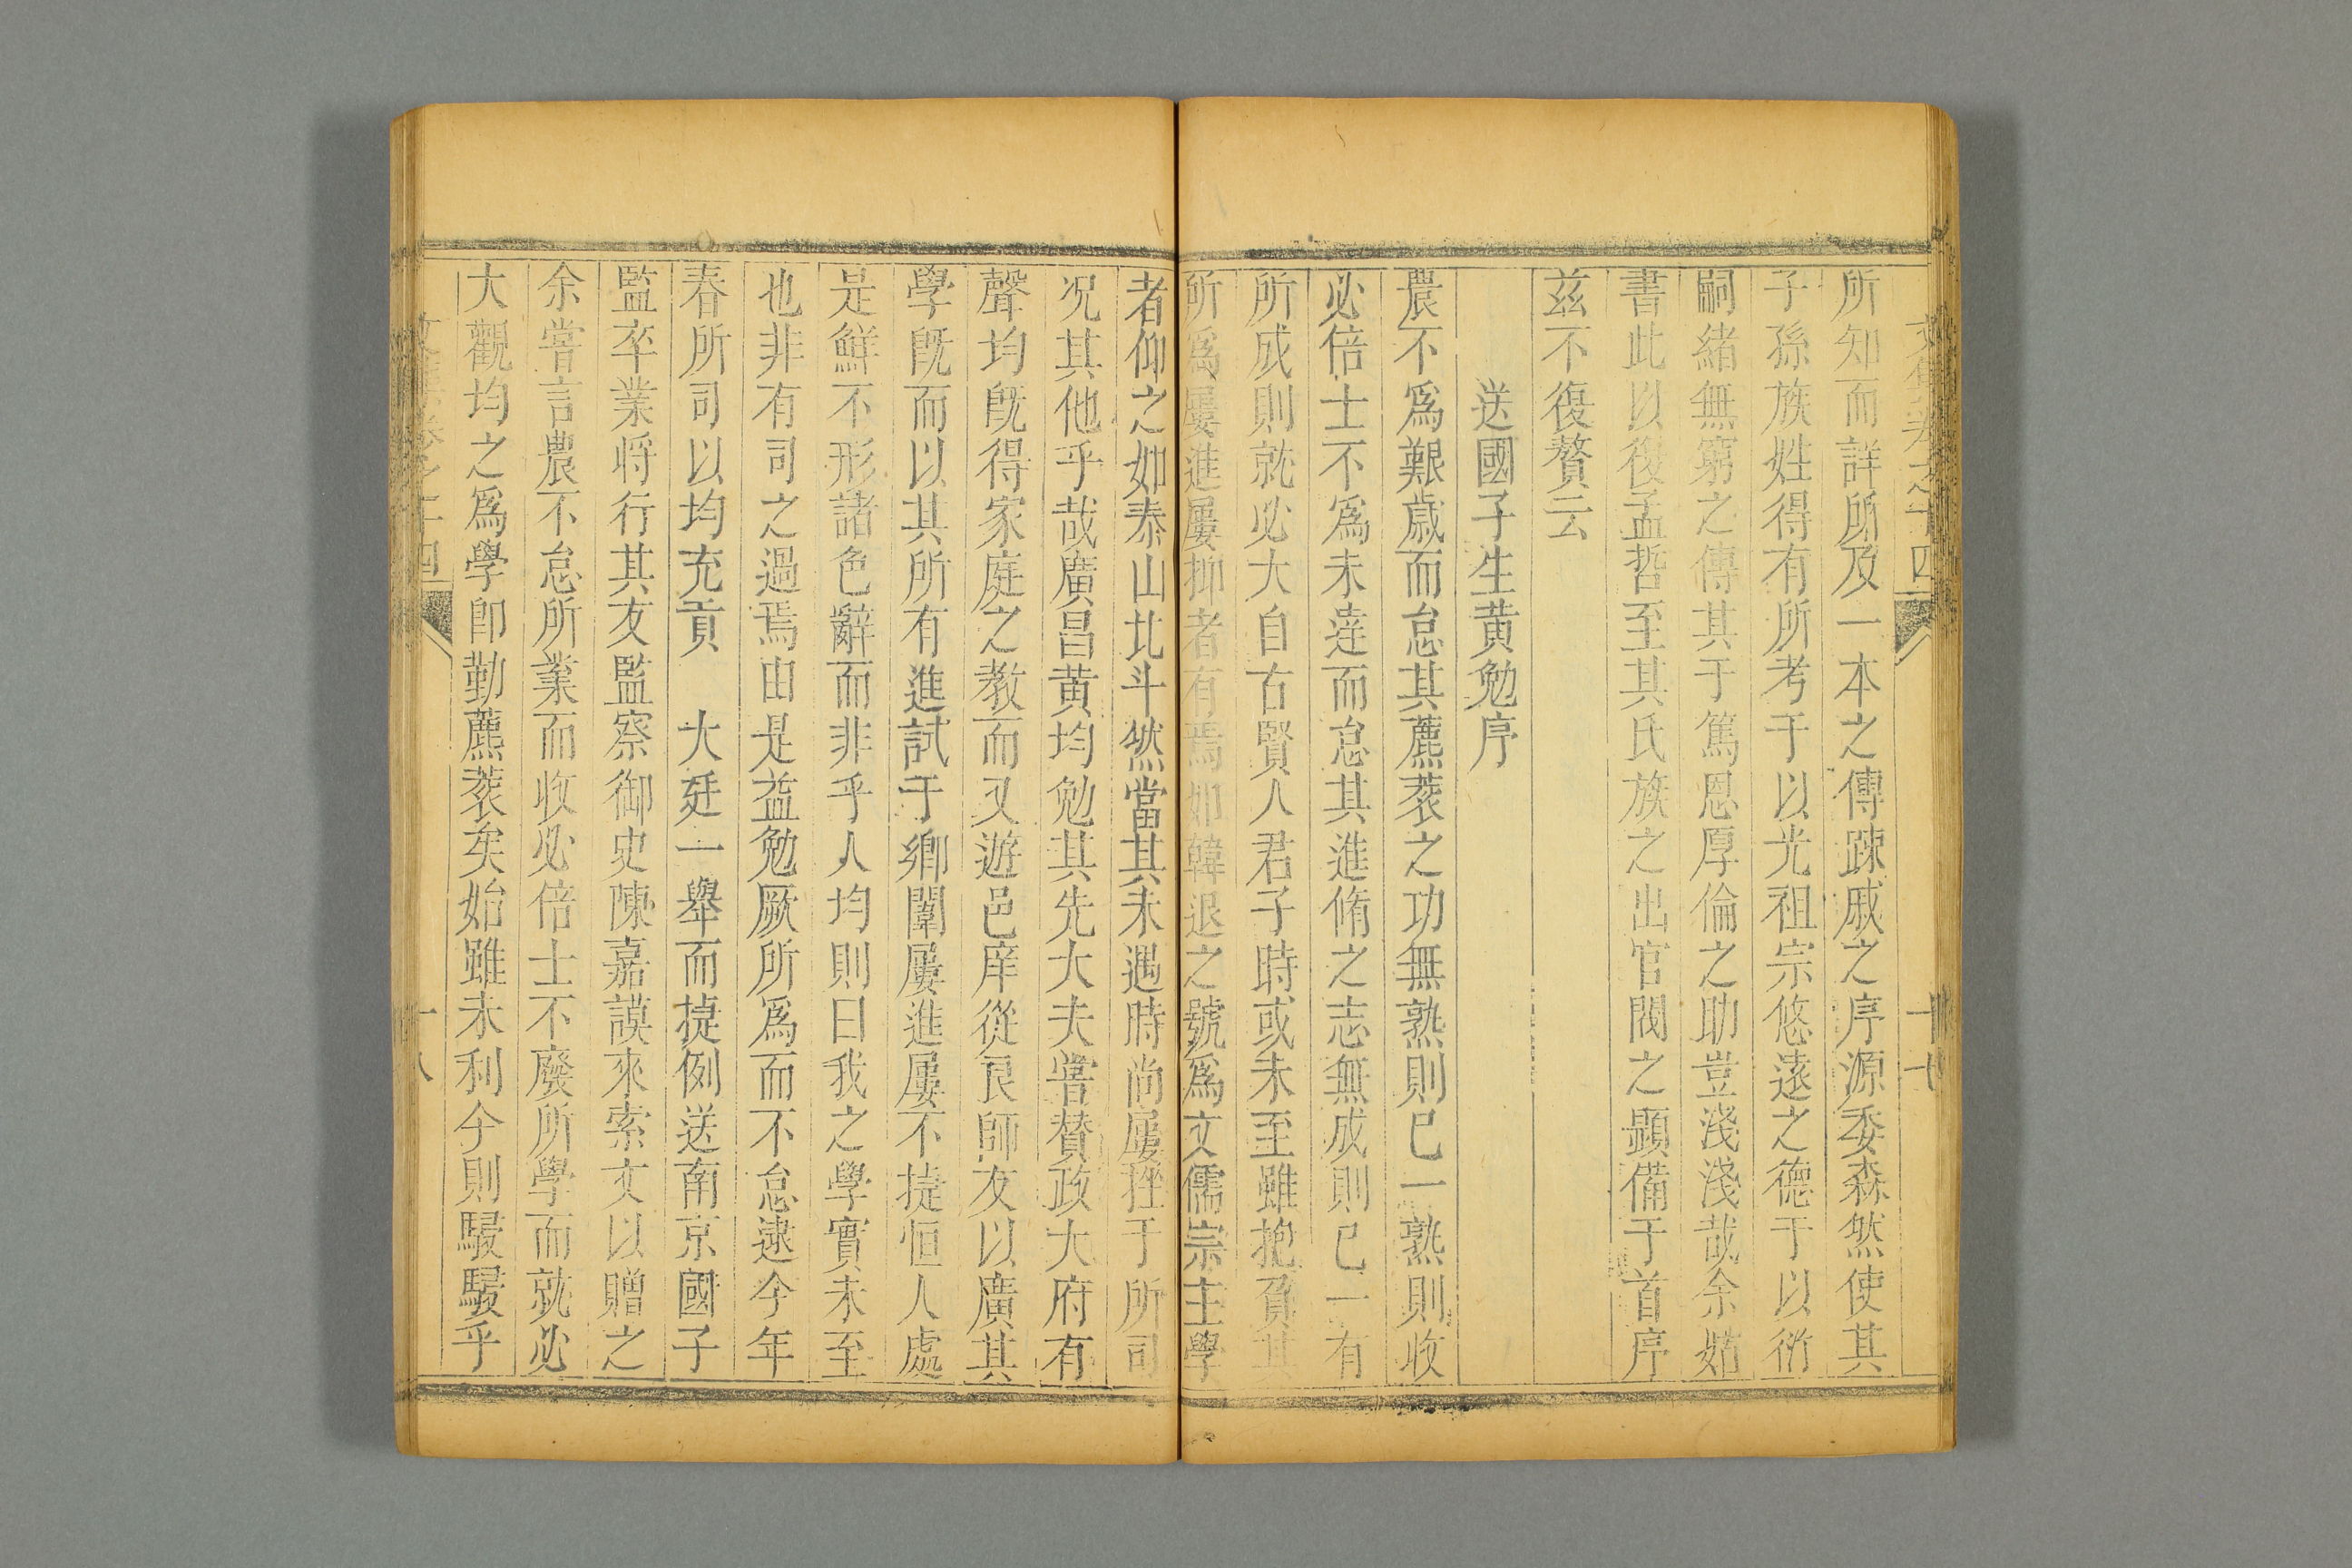 文集卷之十四
十七
所知而詳所及一本之傳踈戚之序源委森然使其
子孫族姓得有所考于以光祖宗悠遠之德于以衍
嗣緒無窮之傳其于篤恩厚倫之助豈淺淺哉余姑
書此以復孟哲至其氏族之出官閥之顯備于首序
茲不復贅云
送國子生黄勉序
農不爲艱歲而怠其藨蔉之功無熟則已一熟則收
必倍士不爲未逹而怠其進脩之志無成則已一有
所成則就必大自古賢人君子時或未至雖抱負其
所爲屢進屢抑者有焉如韓退之號爲文儒宗主學
者仰之如泰山北斗然當其未遇時尚屢挫于所司
况其他乎哉廣昌黄均勉其先大夫嘗賛政大府有
聲均既得家庭之教而又遊邑庠從良師友以廣其
學既而以其所有進試于鄉闈屢進屢不捷恒人處
是鮮不形諸色辭而非乎人均則曰我之學實未至
也非有司之過焉由是益勉厥所爲而不怠逮今年
春所司以均充貢　大廷一舉而捷例送南京國子
監卒業將行其友監察御史陳嘉謨來索文以贈之
余嘗言農不怠所業而收必倍士不廢所學而就必
大觀均之爲學即勤藨蔉矣始雖未利今則駸駸乎
文集卷之十四
十八